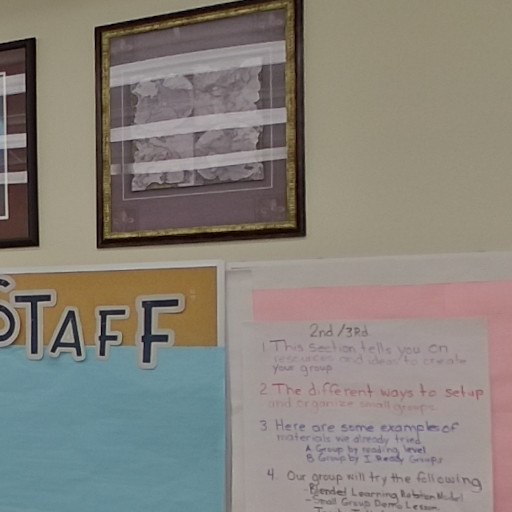 STAFF
2nd/3Rd
1. This section tells you on
resources and ideas to create
your group
2. The different ways to setup
and organize small groups.
3. Here are some examples of
materials we already tried
A. Group by reading level
B. Group by I Ready Groups
4. Our group will try the following
-Blended Learning Rotation Model
-Small Group Demo Lesson